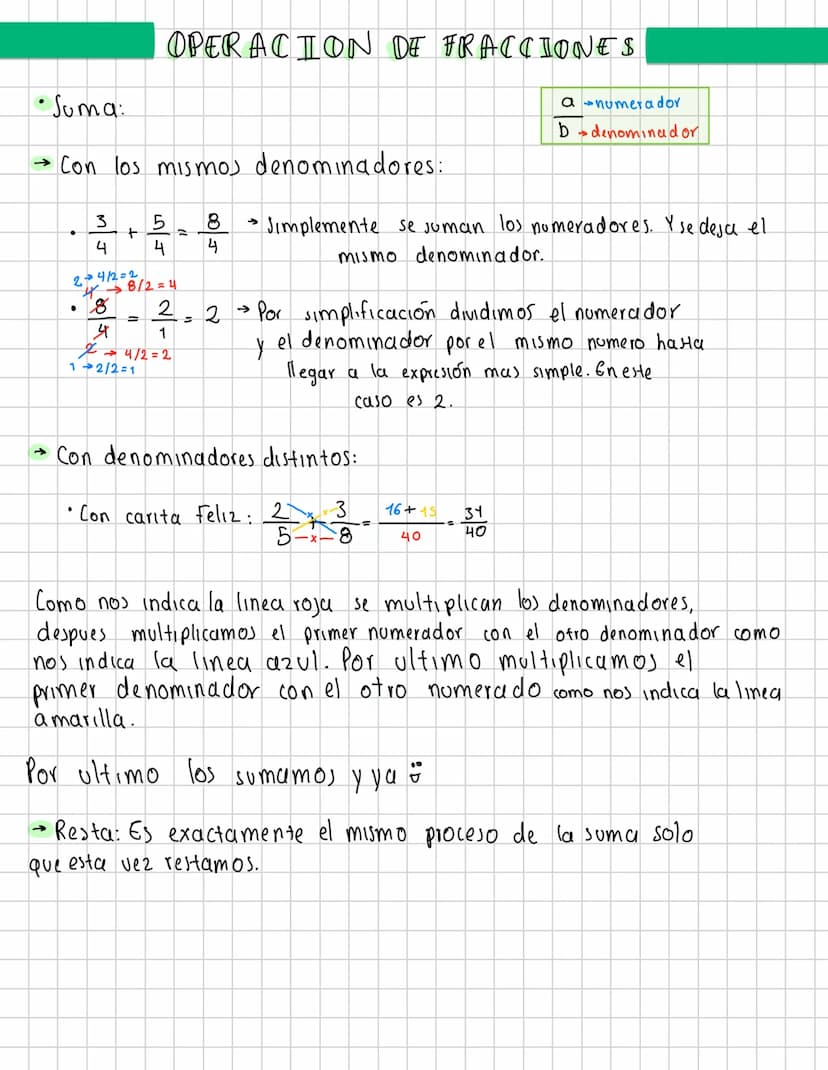 OPERACIION DE FRACCIONES
• Suma:
a → numerador
b → denominador
→ Con los mismos denominadores:
• 3/4 + 5/4 = 8/4 → Simplemente se suman los numeradores. Y se deja el
mismo denominador.
2 → 4/2 = 2
4 → 8/2 = 4
• 8/4 = 2/1 = 2 → Por simplificación dividimos el numerador
y el denominador por el mismo numero hasta
2 → 4/2 = 2
1 → 2/2 = 1
llegar a la expresión mas simple. En este
caso es 2.
→ Con denominadores distintos:
• Con carita Feliz: 2/5 + 3/8 = 16 + 15/40 = 31/40
x x
- x -
Como nos indica la linea roja se multiplican los denominadores,
despues multiplicamos el primer numerador con el otro denominador como
nos indica la linea azul. Por ultimo multiplicamos el
primer denominador con el otro numerado como nos indica la linea
amarilla.
Por ultimo los sumamos y ya
→ Resta: Es exactamente el mismo proceso de la suma solo
que esta vez restamos.